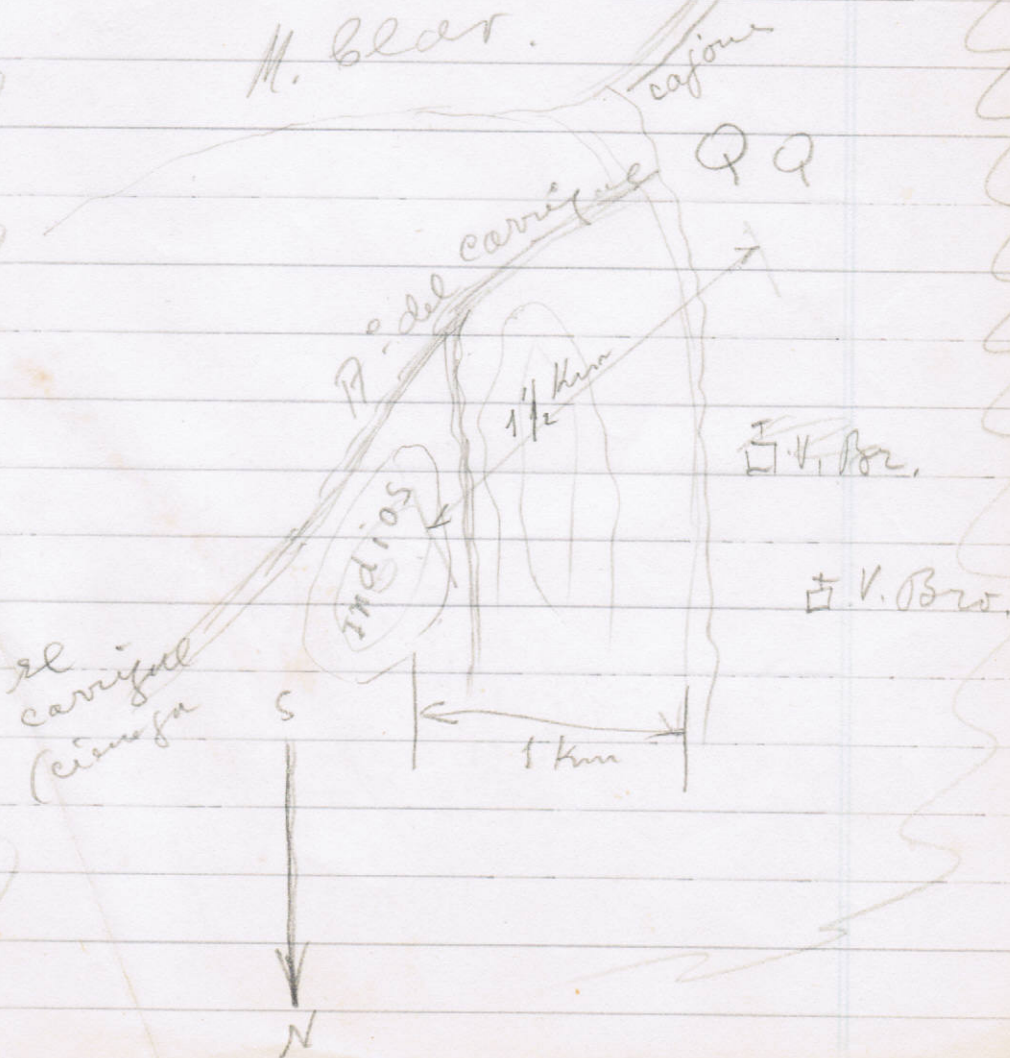 M. Clar.
cajones
Q Q
R.º del carrizal
1 1/2 Km
V. Br.
Indios
V. Bro.
el
carrizal
(cienega
S
1 Km
N